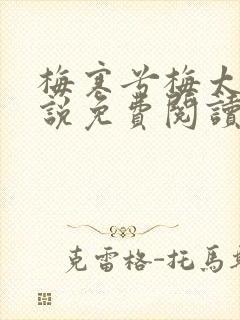 梅寒兮梅大
說免費閱讀
克雷格-托馬斯